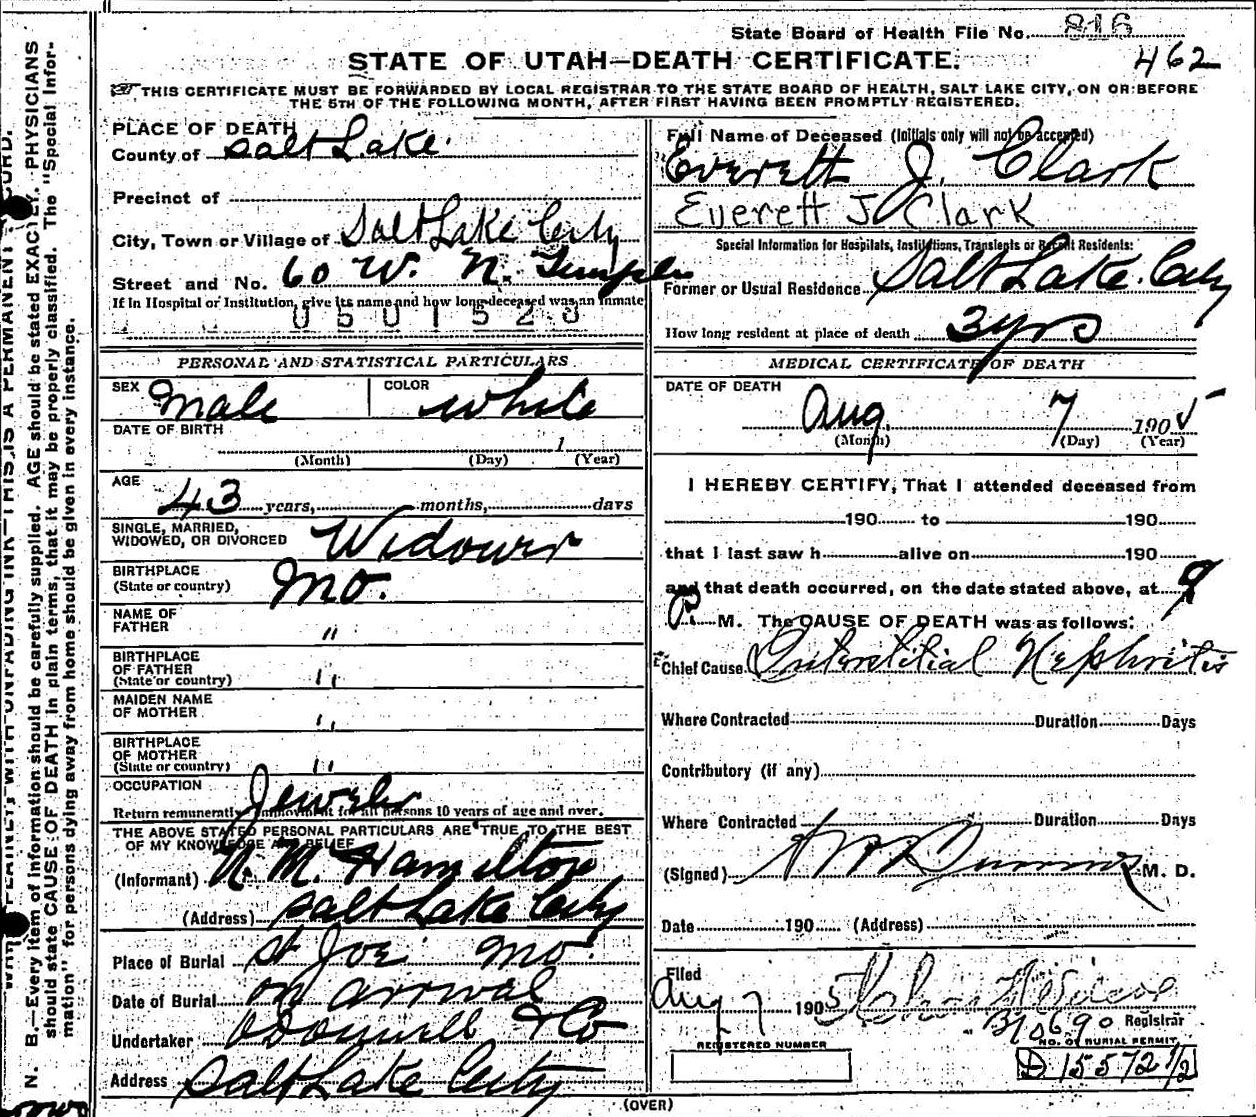 State Board of Health File No. 816
462
STATE OF UTAH—DEATH CERTIFICATE.
THIS CERTIFICATE MUST BE FORWARDED BY LOCAL REGISTRAR TO THE STATE BOARD OF HEALTH, SALT LAKE CITY, ON OR BEFORE
THE 5TH OF THE FOLLOWING MONTH, AFTER FIRST HAVING BEEN PROMPTLY REGISTERED.
PLACE OF DEATH
County of Salt Lake.
Precinct of
City, Town or Village of Salt Lake City
Street and No. 60 W. N. Temple
If in Hospital or Institution, give its name and how long deceased was an inmate
0501523
PERSONAL AND STATISTICAL PARTICULARS
SEX Male COLOR White
DATE OF BIRTH
1
(Month) (Day) (Year)
AGE 43 years, months, days
SINGLE, MARRIED,
WIDOWED, OR DIVORCED Widower
BIRTHPLACE
(State or country) Mo.
NAME OF
FATHER "
BIRTHPLACE
OF FATHER
(State or country) "
MAIDEN NAME
OF MOTHER "
BIRTHPLACE
OF MOTHER
(State or country) "
OCCUPATION Jeweler
Return remunerative employment for all persons 10 years of age and over.
THE ABOVE STATED PERSONAL PARTICULARS ARE TRUE TO THE BEST
OF MY KNOWLEDGE AND BELIEF
(Informant) N. M. Hamilton
(Address) Salt Lake City
Place of Burial St Joe Mo.
Date of Burial on arrival
Undertaker O'Donnell & Co
Address Salt Lake City
Full Name of Deceased (Initials only will not be accepted)
Everett J. Clark
Everett J Clark
Special Information for Hospitals, Institutions, Transients or Recent Residents:
Former or Usual Residence Salt Lake City
How long resident at place of death 3 yrs
MEDICAL CERTIFICATE OF DEATH
DATE OF DEATH
Aug. 7 1905
(Month) (Day) (Year)
I HEREBY CERTIFY, That I attended deceased from
190 to 190
that I last saw h alive on 190
and that death occurred, on the date stated above, at 9
P. M. The CAUSE OF DEATH was as follows:
Chief Cause Interstitial Nephritis
Where Contracted Duration Days
Contributory (if any)
Where Contracted Duration Days
(Signed) M. D.
Date 190 (Address)
Filed
Aug 7 1905
Registrar
REGISTERED NUMBER
NO. OF BURIAL PERMIT
D 15572 1/2
(OVER)
N. B.—Every item of information should be carefully supplied. AGE should be stated EXACTLY. PHYSICIANS
should state CAUSE OF DEATH in plain terms, that it may be properly classified. The "Special Infor-
mation" for persons dying away from home should be given in every instance.